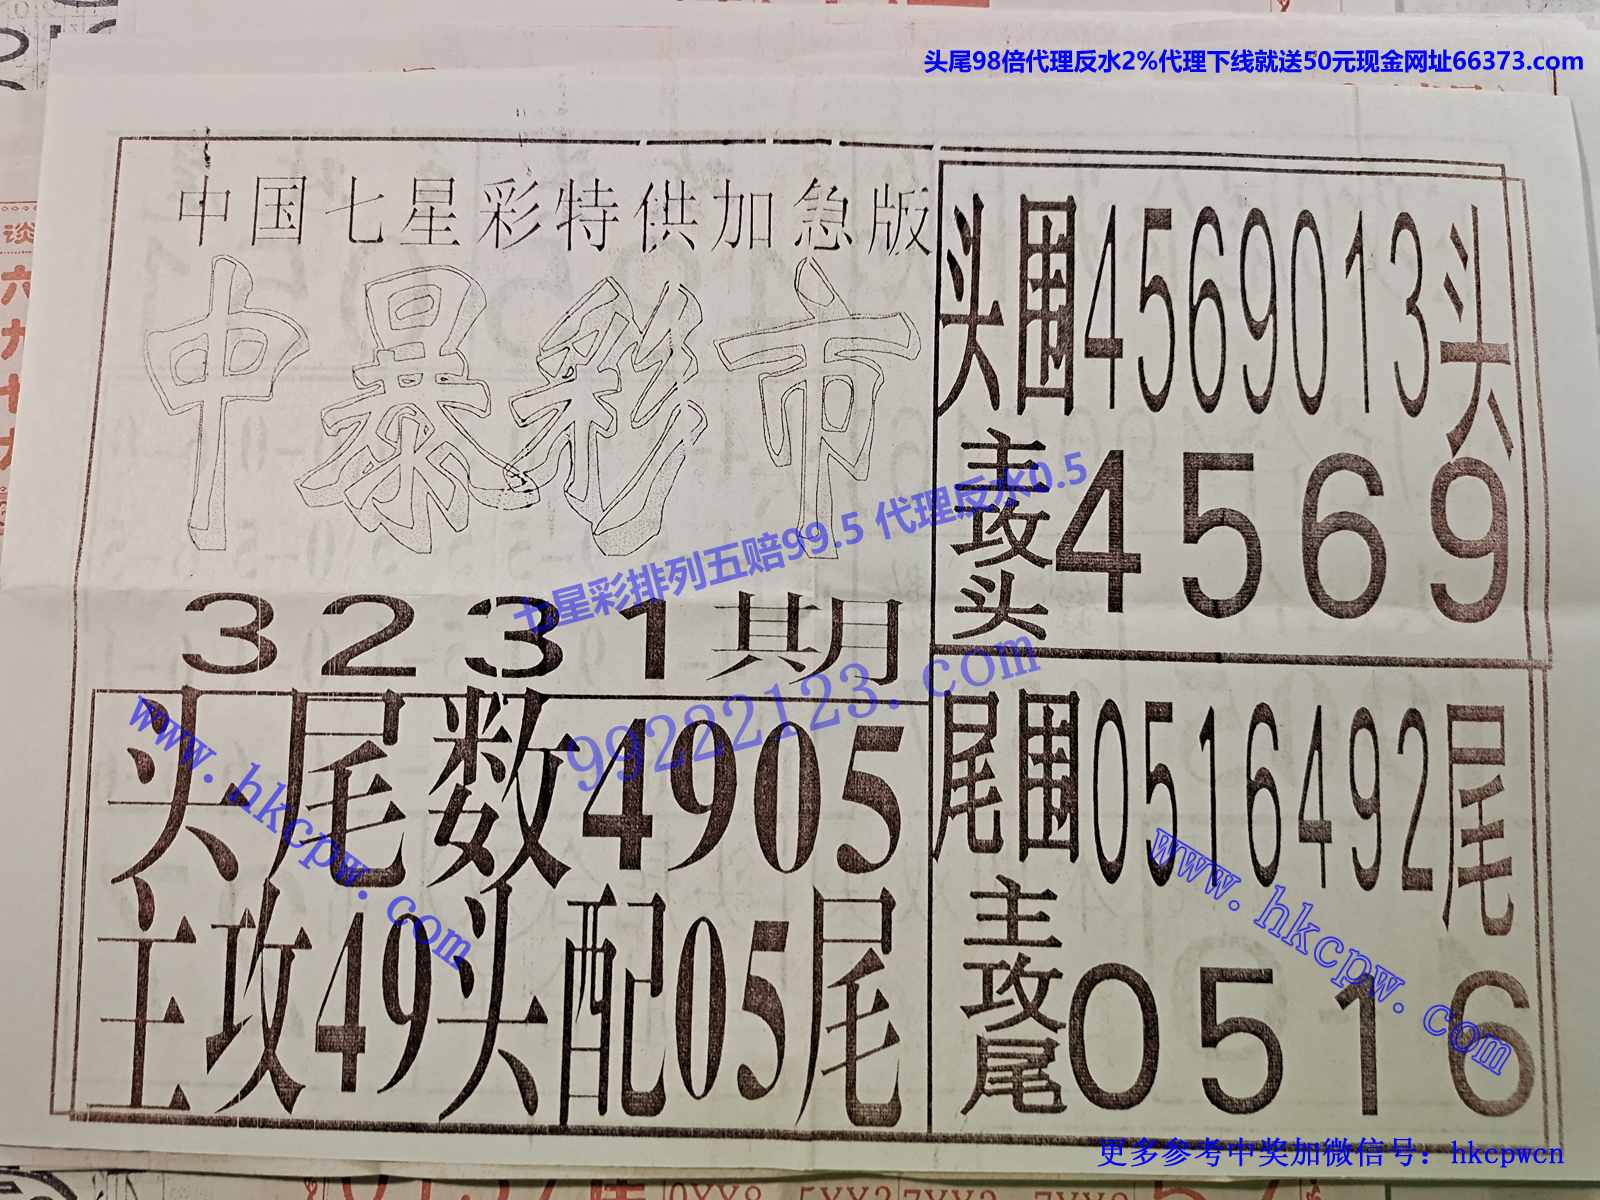 头尾98倍代理反水2%代理下线就送50元现金网址66373.com
中国七星彩特供加急版
中暴彩市
3231期
头尾数4905
主攻49头配05尾
头围4569013头
主攻头4569
尾围0516492尾
主攻尾0516
七星彩排列五赔99.5 代理反水0.5
99222123.com
www.hkcpw.com
www.hkcpw.com
更多参考中奖加微信号：hkcpwcn
谈
六
九
七